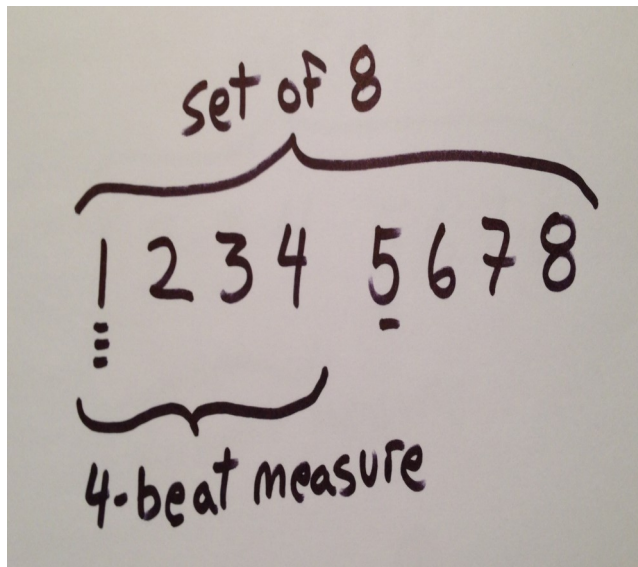 set of 8
1 2 3 4 5 6 7 8
4-beat measure